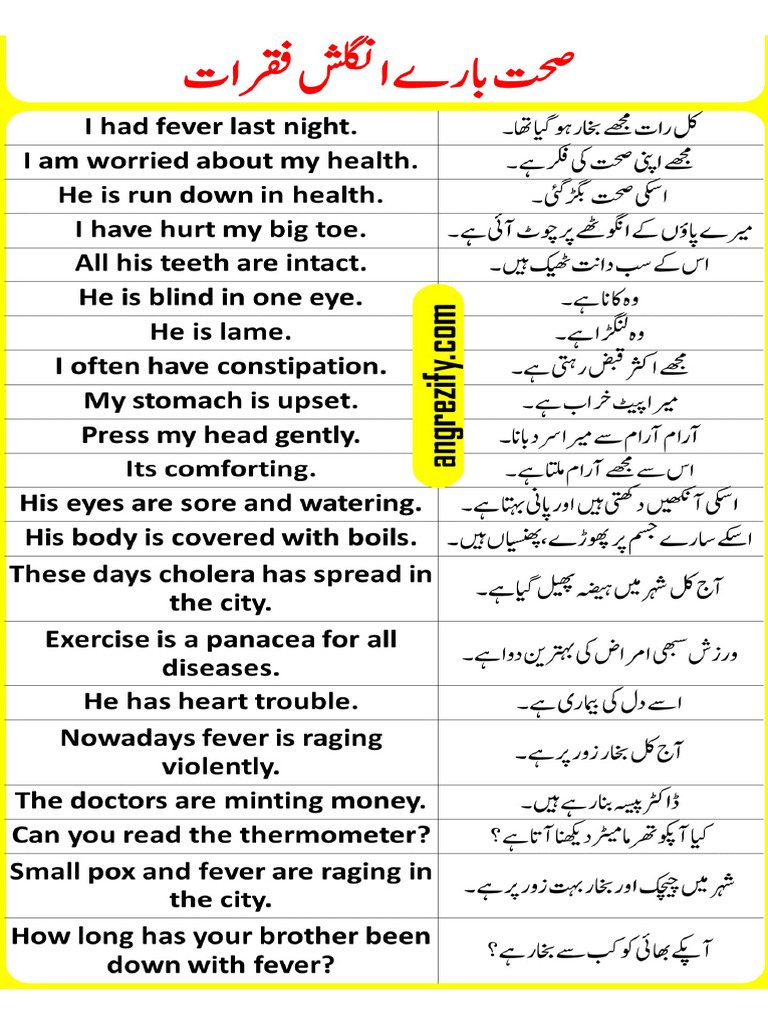 صحت بارے انگلش فقرات
I had fever last night.
کل رات مجھے بخار ہو گیا تھا۔
I am worried about my health.
مجھے اپنی صحت کی فکر ہے۔
He is run down in health.
اسکی صحت بگڑ گئی۔
I have hurt my big toe.
میرے پاؤں کے انگوٹھے پر چوٹ آئی ہے۔
All his teeth are intact.
اس کے سب دانت ٹھیک ہیں۔
He is blind in one eye.
وہ کانا ہے۔
He is lame.
وہ لنگڑا ہے۔
I often have constipation.
مجھے اکثر قبض رہتی ہے۔
My stomach is upset.
میرا پیٹ خراب ہے۔
Press my head gently.
آرام آرام سے میرا سر دبانا۔
Its comforting.
اس سے مجھے آرام ملتا ہے۔
His eyes are sore and watering.
اسکی آنکھیں دکھتی ہیں اور پانی بہتا ہے۔
His body is covered with boils.
اسکے سارے جسم پر پھوڑے، پھنسیاں ہیں۔
These days cholera has spread in
the city.
آج کل شہر میں ہیضہ پھیل گیا ہے۔
Exercise is a panacea for all
diseases.
ورزش سبھی امراض کی بہترین دوا ہے۔
He has heart trouble.
اسے دل کی بیماری ہے۔
Nowadays fever is raging
violently.
آج کل بخار زور پر ہے۔
The doctors are minting money.
ڈاکٹر پیسہ بنا رہے ہیں۔
Can you read the thermometer?
کیا آپکو تھرمامیٹر دیکھنا آتا ہے؟
Small pox and fever are raging in
the city.
شہر میں چیچک اور بخار بہت زور پر ہے۔
How long has your brother been
down with fever?
آپکے بھائی کو کب سے بخار ہے؟
angrezify.com